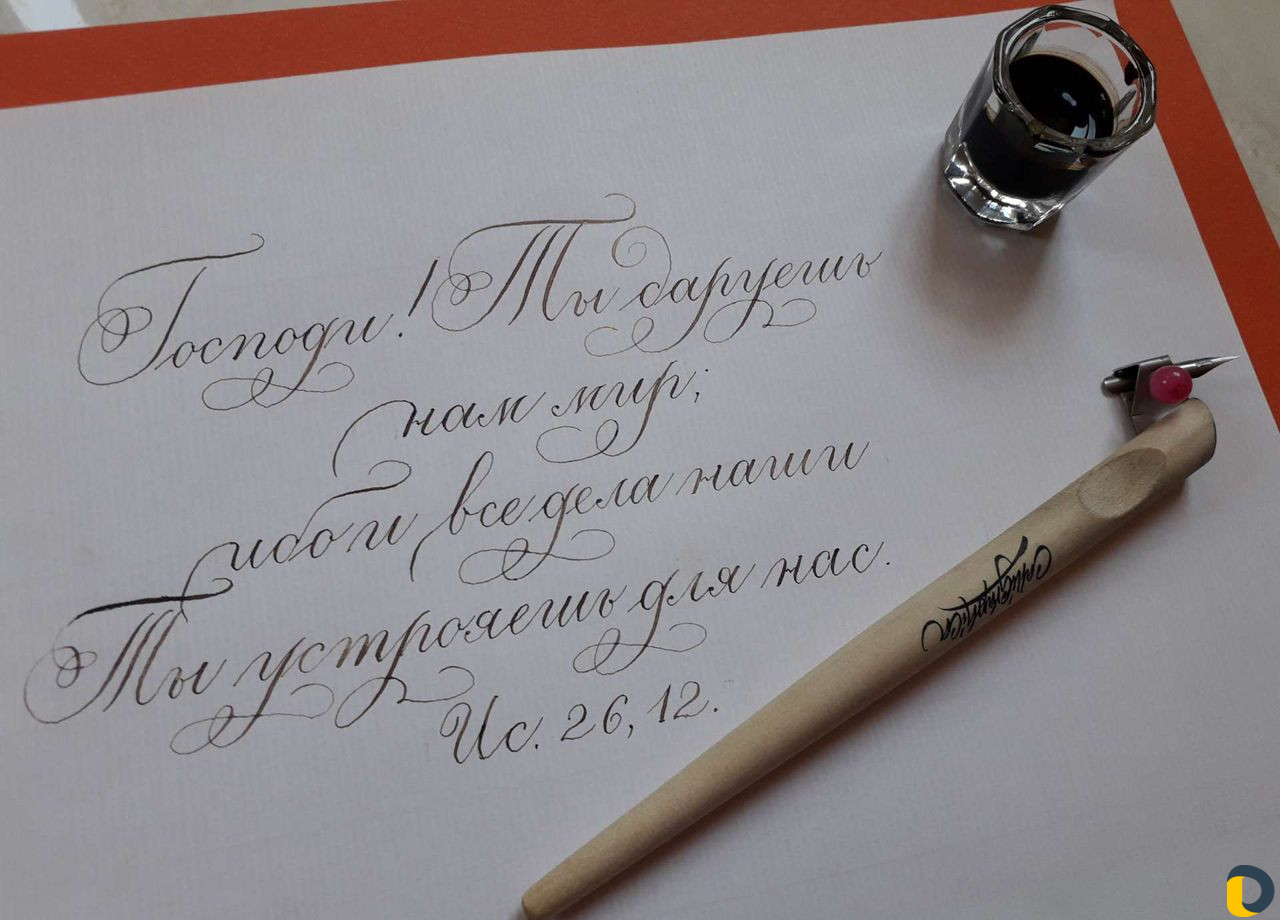 Господи! Ты даруешь
нам мир;
ибо и все дела наши
Ты устрояешь для нас.
Ис. 26, 12.